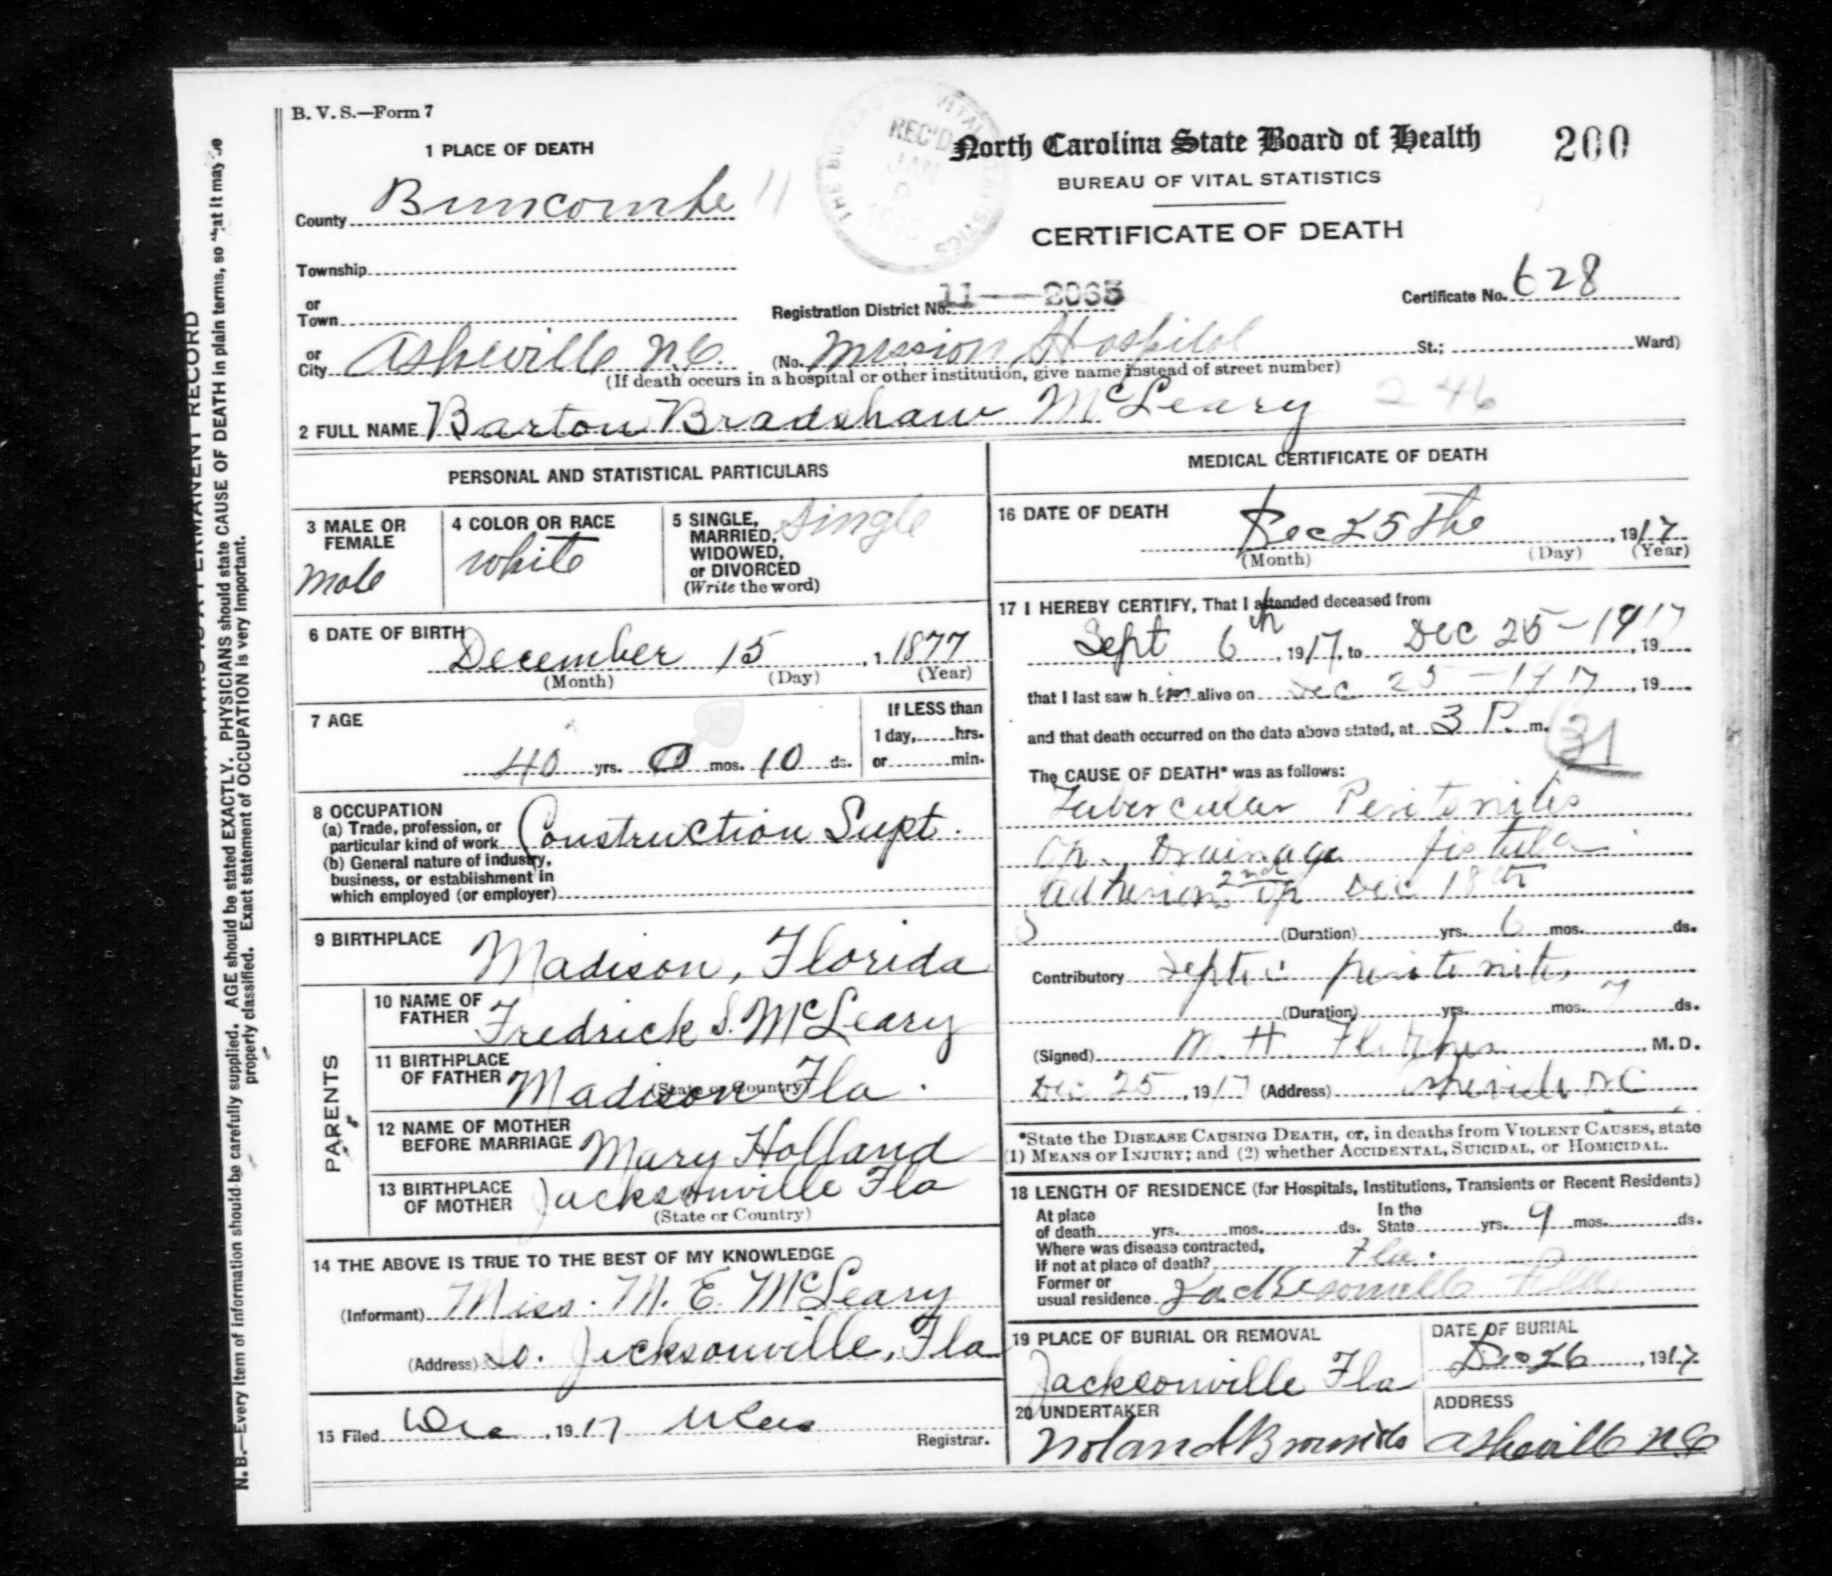 B. V. S.—Form 7
1 PLACE OF DEATH
North Carolina State Board of Health 200
BUREAU OF VITAL STATISTICS
CERTIFICATE OF DEATH
REC'D
JAN
THE BUREAU VITAL STATISTICS
County Buncombe 11
Township
or
Town
Registration District No. 11—2065 Certificate No. 628
or
City Asheville N.C. (No. Mission Hospital St.; Ward)
(If death occurs in a hospital or other institution, give name instead of street number)
246
2 FULL NAME Barton Bradshaw McLeary
PERSONAL AND STATISTICAL PARTICULARS
3 MALE OR FEMALE
Male
4 COLOR OR RACE
white
5 SINGLE, MARRIED, WIDOWED, or DIVORCED (Write the word)
Single
6 DATE OF BIRTH
December 15, 1 1877
(Month) (Day) (Year)
7 AGE
40 yrs. 0 mos. 10 ds.
If LESS than
1 day, hrs.
or min.
8 OCCUPATION
(a) Trade, profession, or
particular kind of work Construction Supt.
(b) General nature of industry,
business, or establishment in
which employed (or employer)
9 BIRTHPLACE
Madison, Florida
PARENTS
10 NAME OF FATHER Fredrick S. McLeary
11 BIRTHPLACE OF FATHER Madison Fla.
(State or Country)
12 NAME OF MOTHER BEFORE MARRIAGE Mary Holland
13 BIRTHPLACE OF MOTHER Jacksonville Fla
(State or Country)
14 THE ABOVE IS TRUE TO THE BEST OF MY KNOWLEDGE
(Informant) Miss. M. E. McLeary
(Address) So. Jacksonville, Fla
15 Filed , 1917
Registrar.
MEDICAL CERTIFICATE OF DEATH
16 DATE OF DEATH
Dec 25 the, 1917
(Month) (Day) (Year)
17 I HEREBY CERTIFY, That I attended deceased from
Sept 6th, 1917, to Dec 25-1917, 19
that I last saw him alive on Dec 25-1917, 19
and that death occurred on the date above stated, at 3 P. m.
31
The CAUSE OF DEATH* was as follows:
Tubercular Peritonitis
Op. Drainage fistula
Adhesions 2nd op Dec 18th
(Duration) yrs. 6 mos. ds.
Contributory Septic peritonitis
(Duration) yrs. mos. 7 ds.
(Signed) M. H. Fletcher, M. D.
Dec 25, 1917 (Address) Asheville N.C
*State the DISEASE CAUSING DEATH, or, in deaths from VIOLENT CAUSES, state
(1) MEANS OF INJURY; and (2) whether ACCIDENTAL, SUICIDAL, or HOMICIDAL.
18 LENGTH OF RESIDENCE (for Hospitals, Institutions, Transients or Recent Residents)
At place of death yrs. mos. ds. In the State yrs. 9 mos. ds.
Where was disease contracted,
If not at place of death? Fla.
Former or
usual residence Jacksonville Fla
19 PLACE OF BURIAL OR REMOVAL
Jacksonville Fla
DATE OF BURIAL
Dec 26, 1917
20 UNDERTAKER
ADDRESS
Asheville N.C
N. B.—Every item of information should be carefully supplied. AGE should be stated EXACTLY. PHYSICIANS should state CAUSE OF DEATH in plain terms, so that it may be
properly classified. Exact statement of OCCUPATION is very important.
THIS IS A PERMANENT RECORD